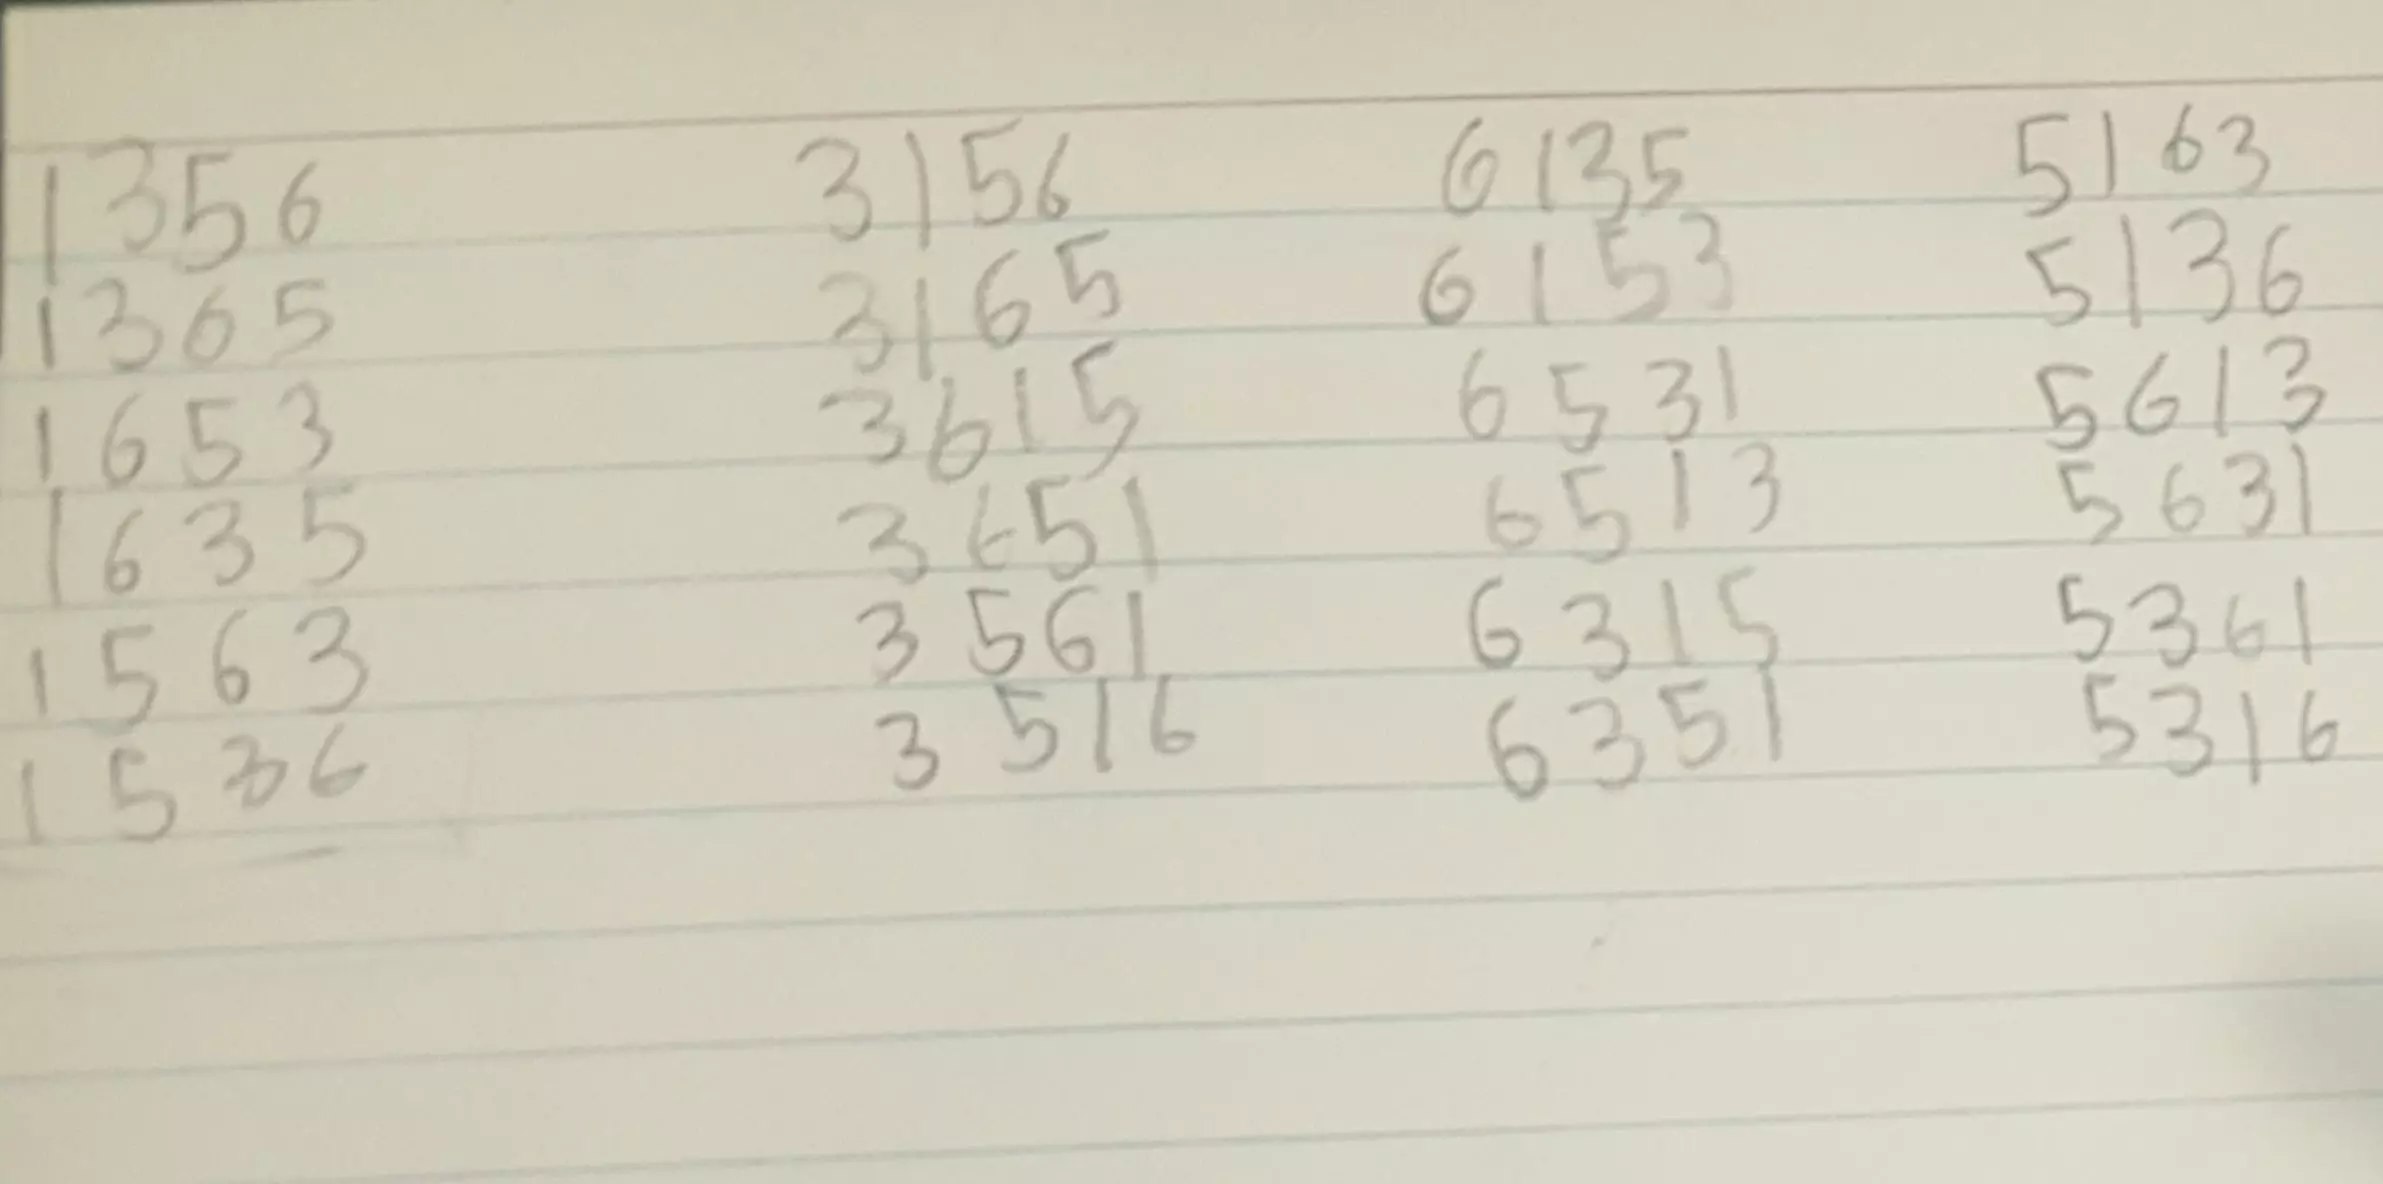 1356 3156 6135 5163
1365 3165 6153 5136
1653 3615 6531 5613
1635 3651 6513 5631
1563 3561 6315 5361
1536 3516 6351 5316